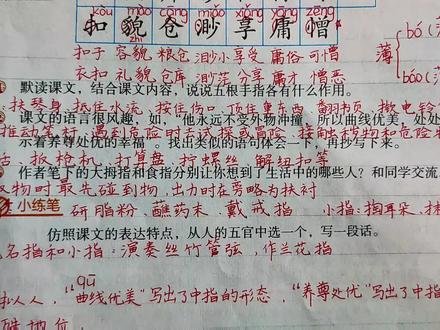 kòu mào cāng miǎo xiǎng yōng zèng
扣 貌 仓 渺 享 庸 憎
zhī
扣子 容貌 粮仓 渺小享受 庸俗 可憎
衣扣 礼貌 仓库 渺茫分享 庸才 憎恶
薄
bó
báo
默读课文,结合课文内容,说说五根手指各有什么作用。
扶琴身、抵住水流、按住伤口、顶住重东西、翻书页、揿电铃
课文的语言很风趣,如,“他永远不受外物冲撞,所以曲线优美,处处
推动笔杆、遇到危险时去试探或冒险、接触秽物和危险
示着养尊处优的幸福”。找出类似的语句体会一下,再抄写下来。
扳枪机、打算盘、拧螺丝、解纽扣等
作者笔下的大拇指和食指分别让你想到了生活中的哪些人?和同学交流
取物时最先碰到物,出力时在旁略为扶衬
小练笔 研脂粉、蘸药末、戴戒指 小指:掏耳朵、抹
仿照课文的表达特点,从人的五官中选一个,写一段话。
名指和小指:演奏丝竹管弦,作兰花指
qū
拟人,“曲线优美”写出了中指的形态,“养尊处优”写出了中指
殊地位